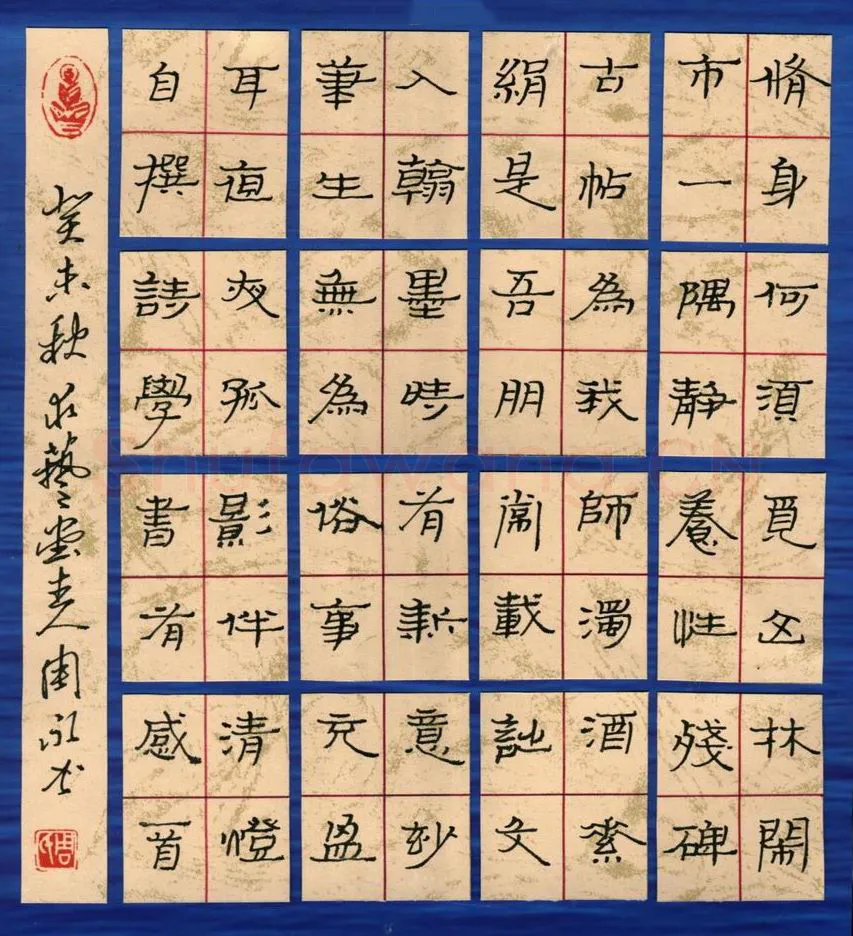 脩身何須覓山林閙
市一隅靜養性殘碑
古帖為我師濁酒素
絹是吾朋常載文
入翰墨時有新意妙
筆生無為俗事冗盈
耳直夜孤影伴清燈
自撰詩學書有感一首
癸未秋藝堂主人周永
ShufaWang.CN